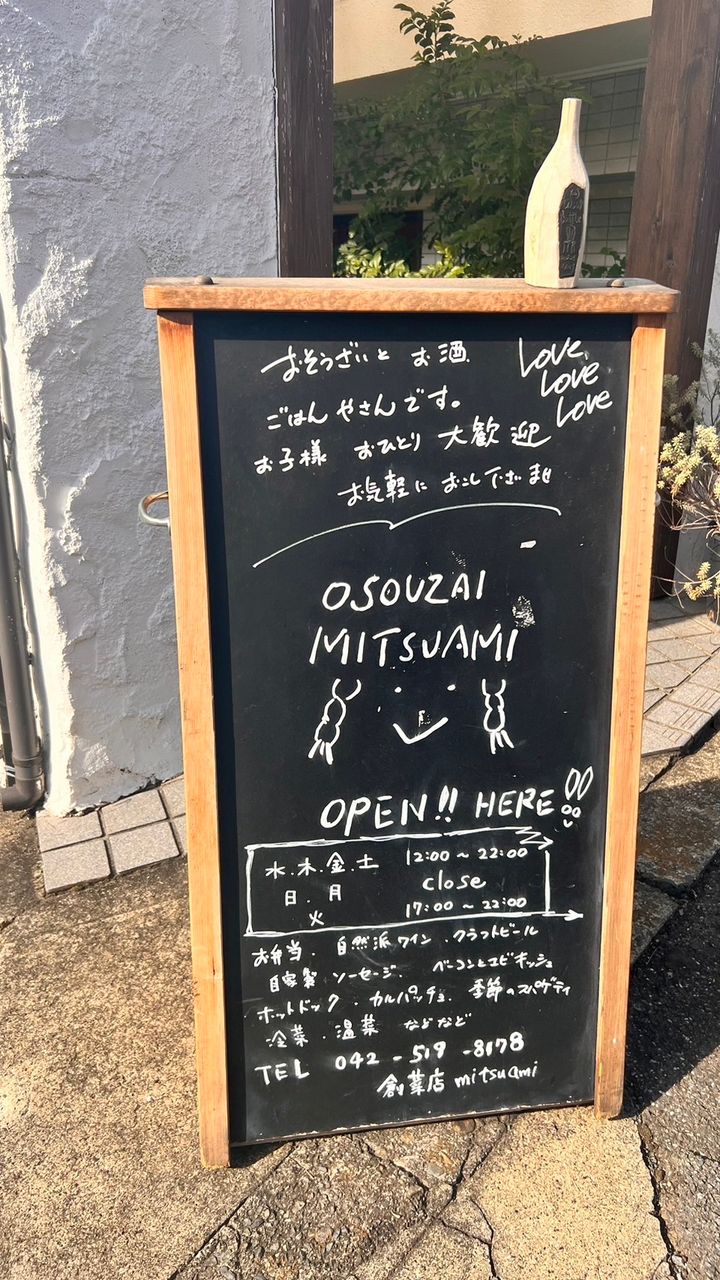 おそうざいと お酒
Love
Love
Love
ごはんやさんです。
お子様 おひとり 大歓迎
お気軽に おこしくださいませ
OSOUZAI
MITSUAMI
OPEN!! HERE!!
水.木.金.土 12:00 ~ 22:00
日.月 close
火 17:00 ~ 22:00
お弁当. 自然派ワイン.クラフトビール
自家製 ソーセージ. ベーコンとエビキッシュ
ホットドック. カルパッチョ. 季節のスパゲティ
冷菜.温菜 などなど
TEL 042-519-8178
創菜店 mitsuami